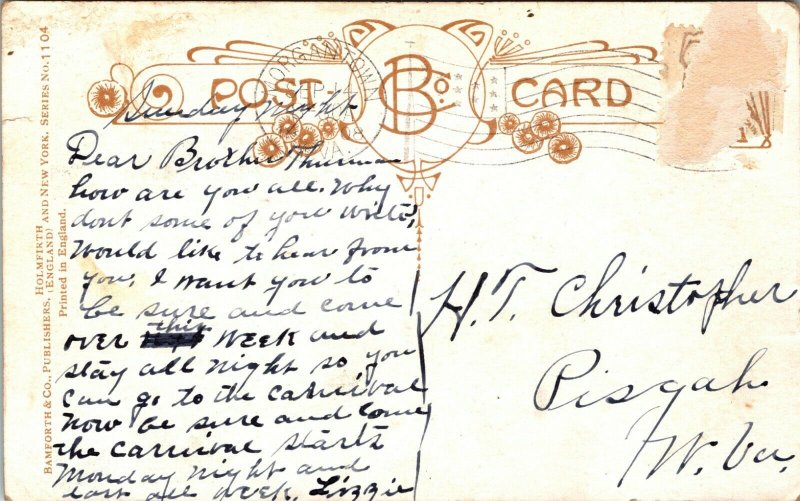 POST-
Bo.
CARD
MORGANTOWN
Sunday night
Dear Brother Thurman
how are you all. Why
dont some of you write,
Would like to hear from
you, I want you to
be sure and come
over this week and
stay all night so you
can go to the carnival
Now be sure and come
the carnival starts
Monday night and
last all week. Lizzie
H.T. Christopher
Pisgah
W. Va.
BAMFORTH & CO., PUBLISHERS, HOLMFIRTH (ENGLAND) AND NEW YORK. SERIES No. 1104
Printed in England.